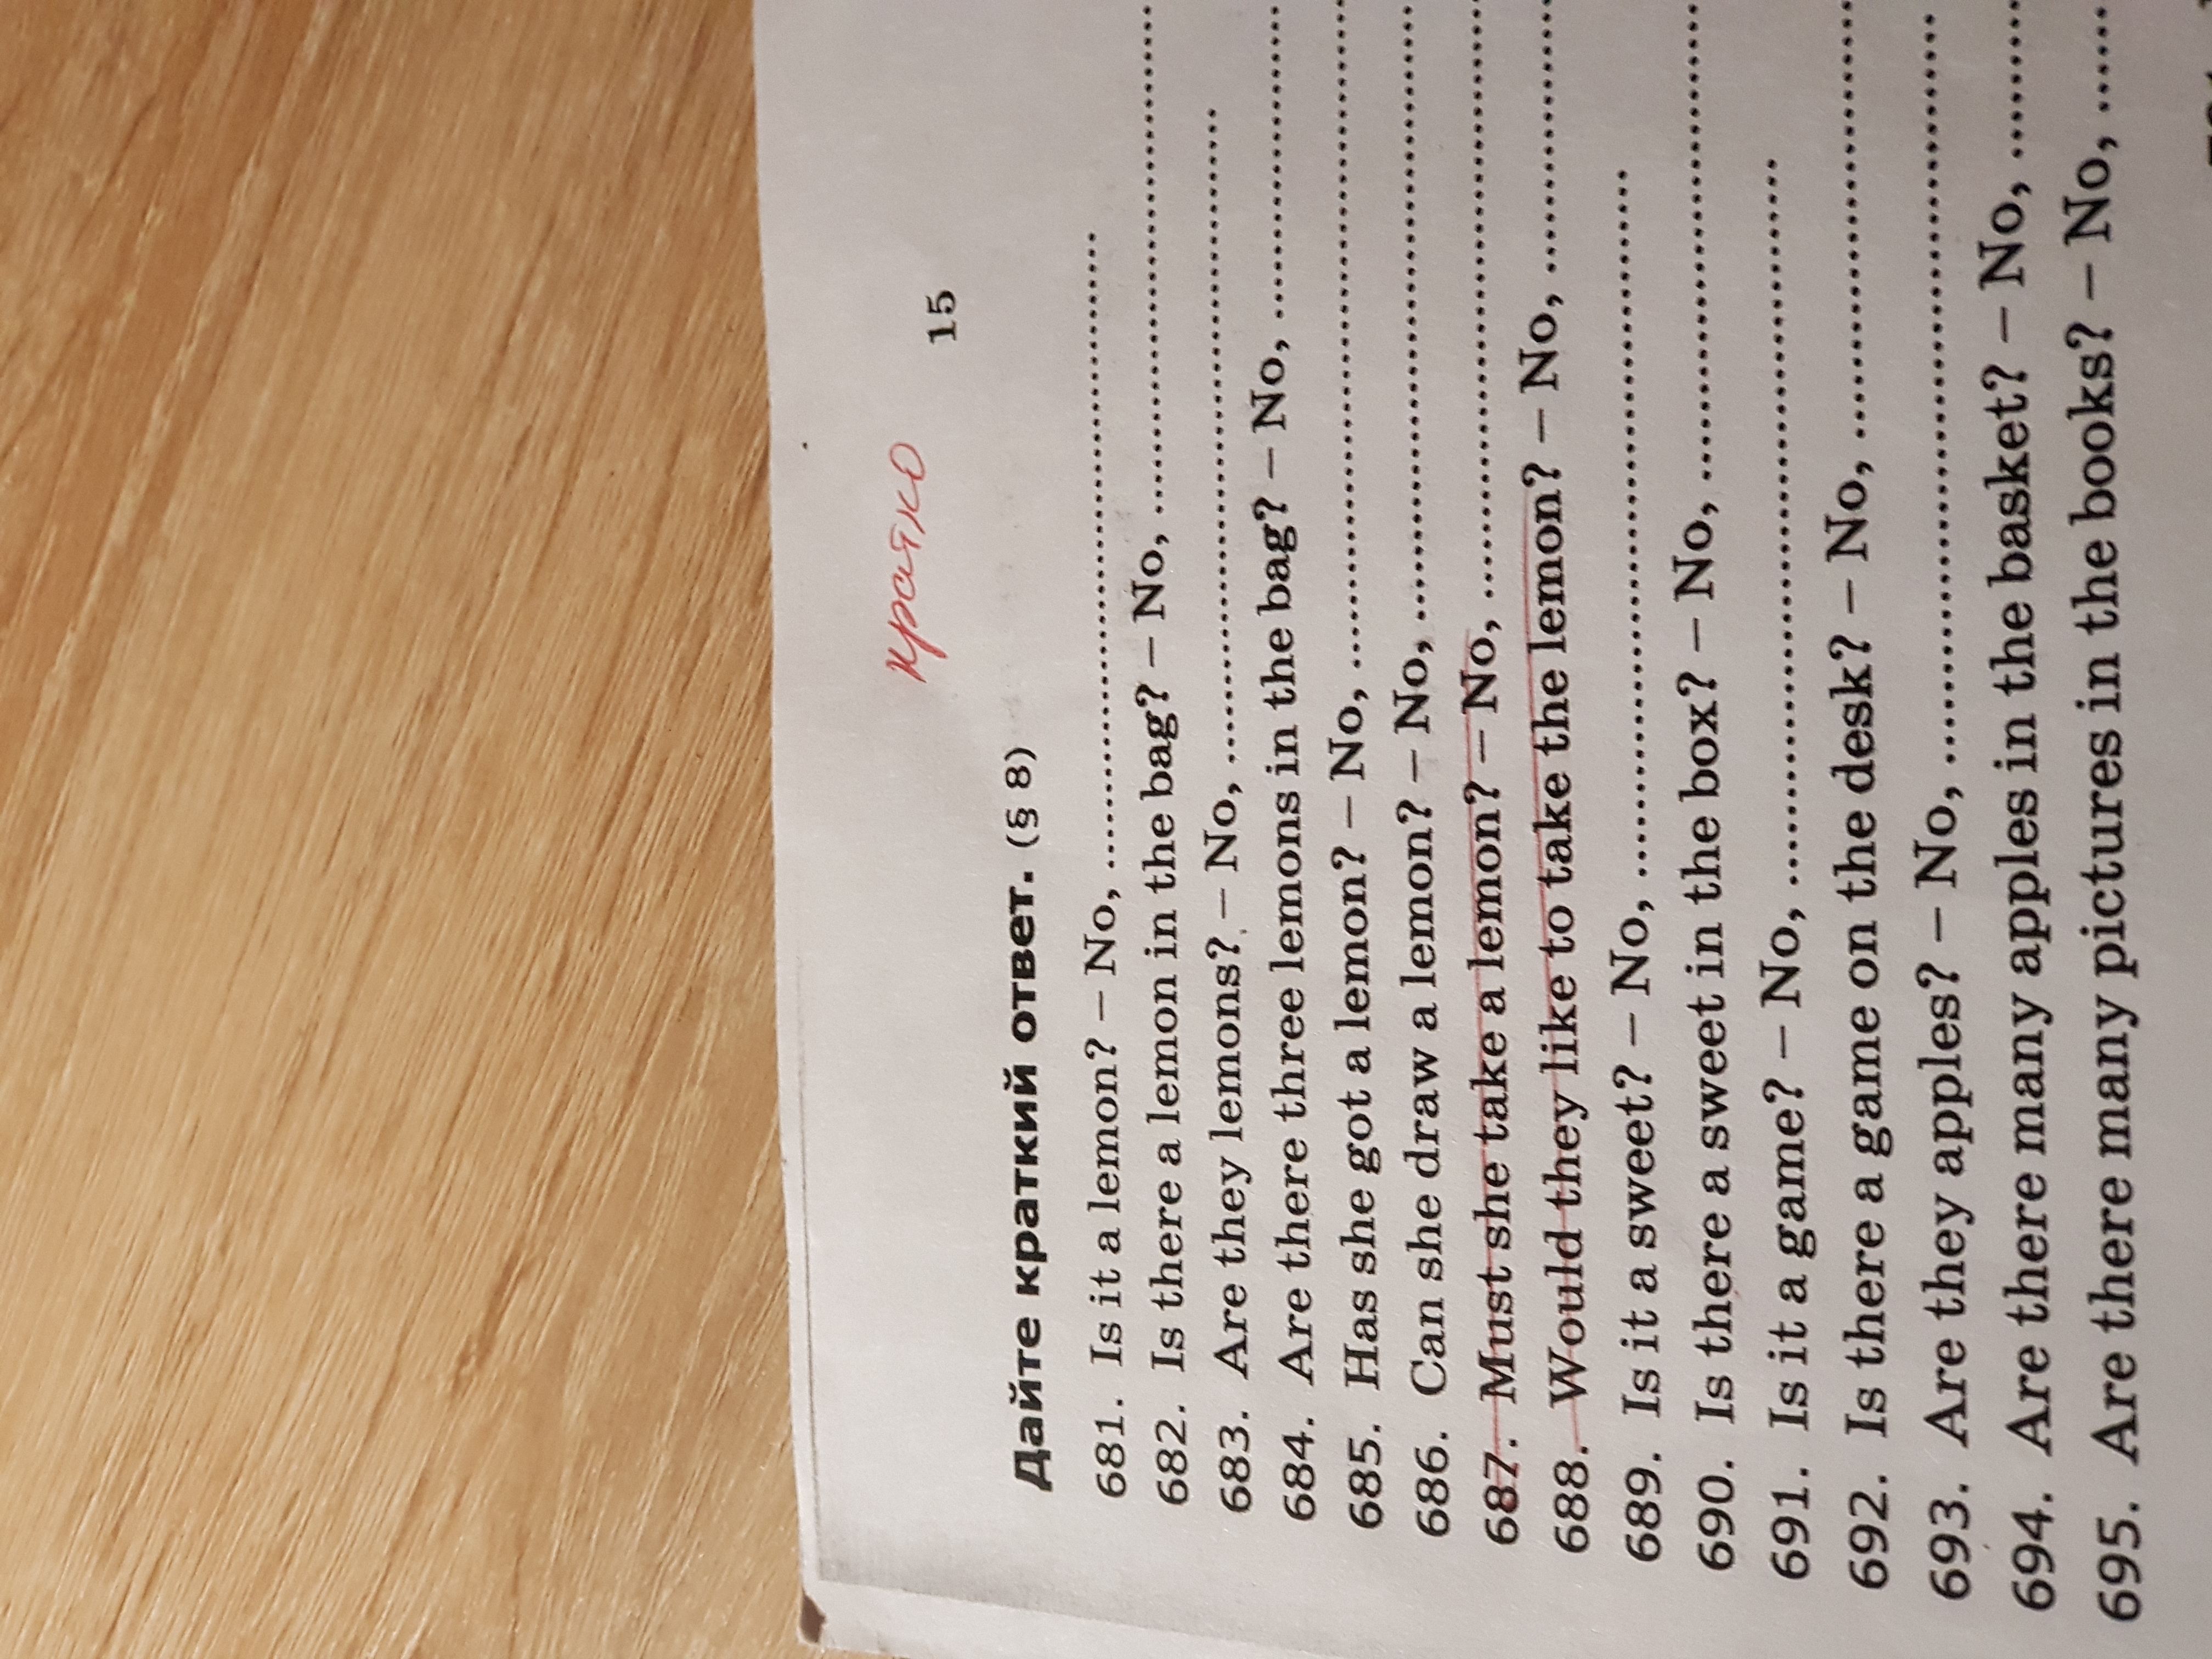 кратко
15
Дайте краткий ответ. (§ 8)
681. Is it a lemon? – No, ..........
682. Is there a lemon in the bag? – No, ..........
683. Are they lemons? – No, ..........
684. Are there three lemons in the bag? – No, ..........
685. Has she got a lemon? – No, ..........
686. Can she draw a lemon? – No, ..........
687. Must she take a lemon? – No, ..........
688. Would they like to take the lemon? – No, ..........
689. Is it a sweet? – No, ..........
690. Is there a sweet in the box? – No, ..........
691. Is it a game? – No, ..........
692. Is there a game on the desk? – No, ..........
693. Are they apples? – No, ..........
694. Are there many apples in the basket? – No, ..........
695. Are there many pictures in the books? – No, ......